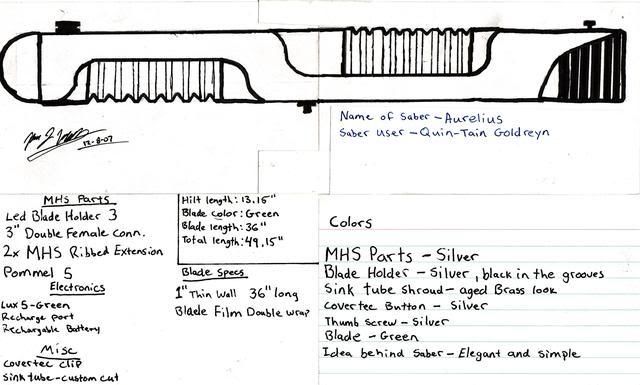 Name of Saber - Aurelius
Saber user - Quin-Tain Goldreyn
12-8-07
MHS Parts
Led Blade Holder 3
3" Double Female Conn.
2x MHS Ribbed Extension
Pommel 5
Electronics
Lux 5-Green
Recharge Port
Rechargable Battery
Misc
Covertec Clip
Sink tube-custom cut
Hilt length: 13.15"
Blade color: Green
Blade length: 36"
Total length: 49.15"
Blade Specs
1" Thin Wall 36" long
Blade Film Double wrap
Colors
MHS Parts - Silver
Blade Holder - Silver, black in the grooves
Sink tube Shroud - aged Brass look
Covertec Button - Silver
Thumb Screw - Silver
Blade - Green
Idea behind Saber - Elegant and simple